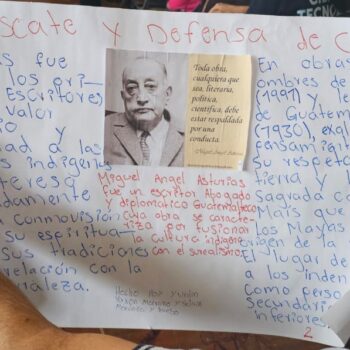 scate y Defensa de C
s fue
los pri-
ESCRITORES
valor
dad a las
s indigenas
teresó
damente
conmovisión
su espiritua-
sus tradiciones
relación con la
raleza.
Toda obra,
cualquiera que
sea, literaria,
política,
científica, debe
estar respaldada
por una
conducta.
Miguel Ángel Asturias
Miguel Angel Asturias
fue un escritor Abogado
y diplomatico Guatemalteco
cuya obra se caracte-
riza por fusionar
la cultura indigena
con el surealismo.
Hecho por
En obras
ombres de
y Le
de Guatem
(1930), exal
pensamient
su respeto
tierra y l
sagrada co
Maís que
los Mayas
origen de la
El lugar de
a los inden
como perso
secundario
inferiores.
2